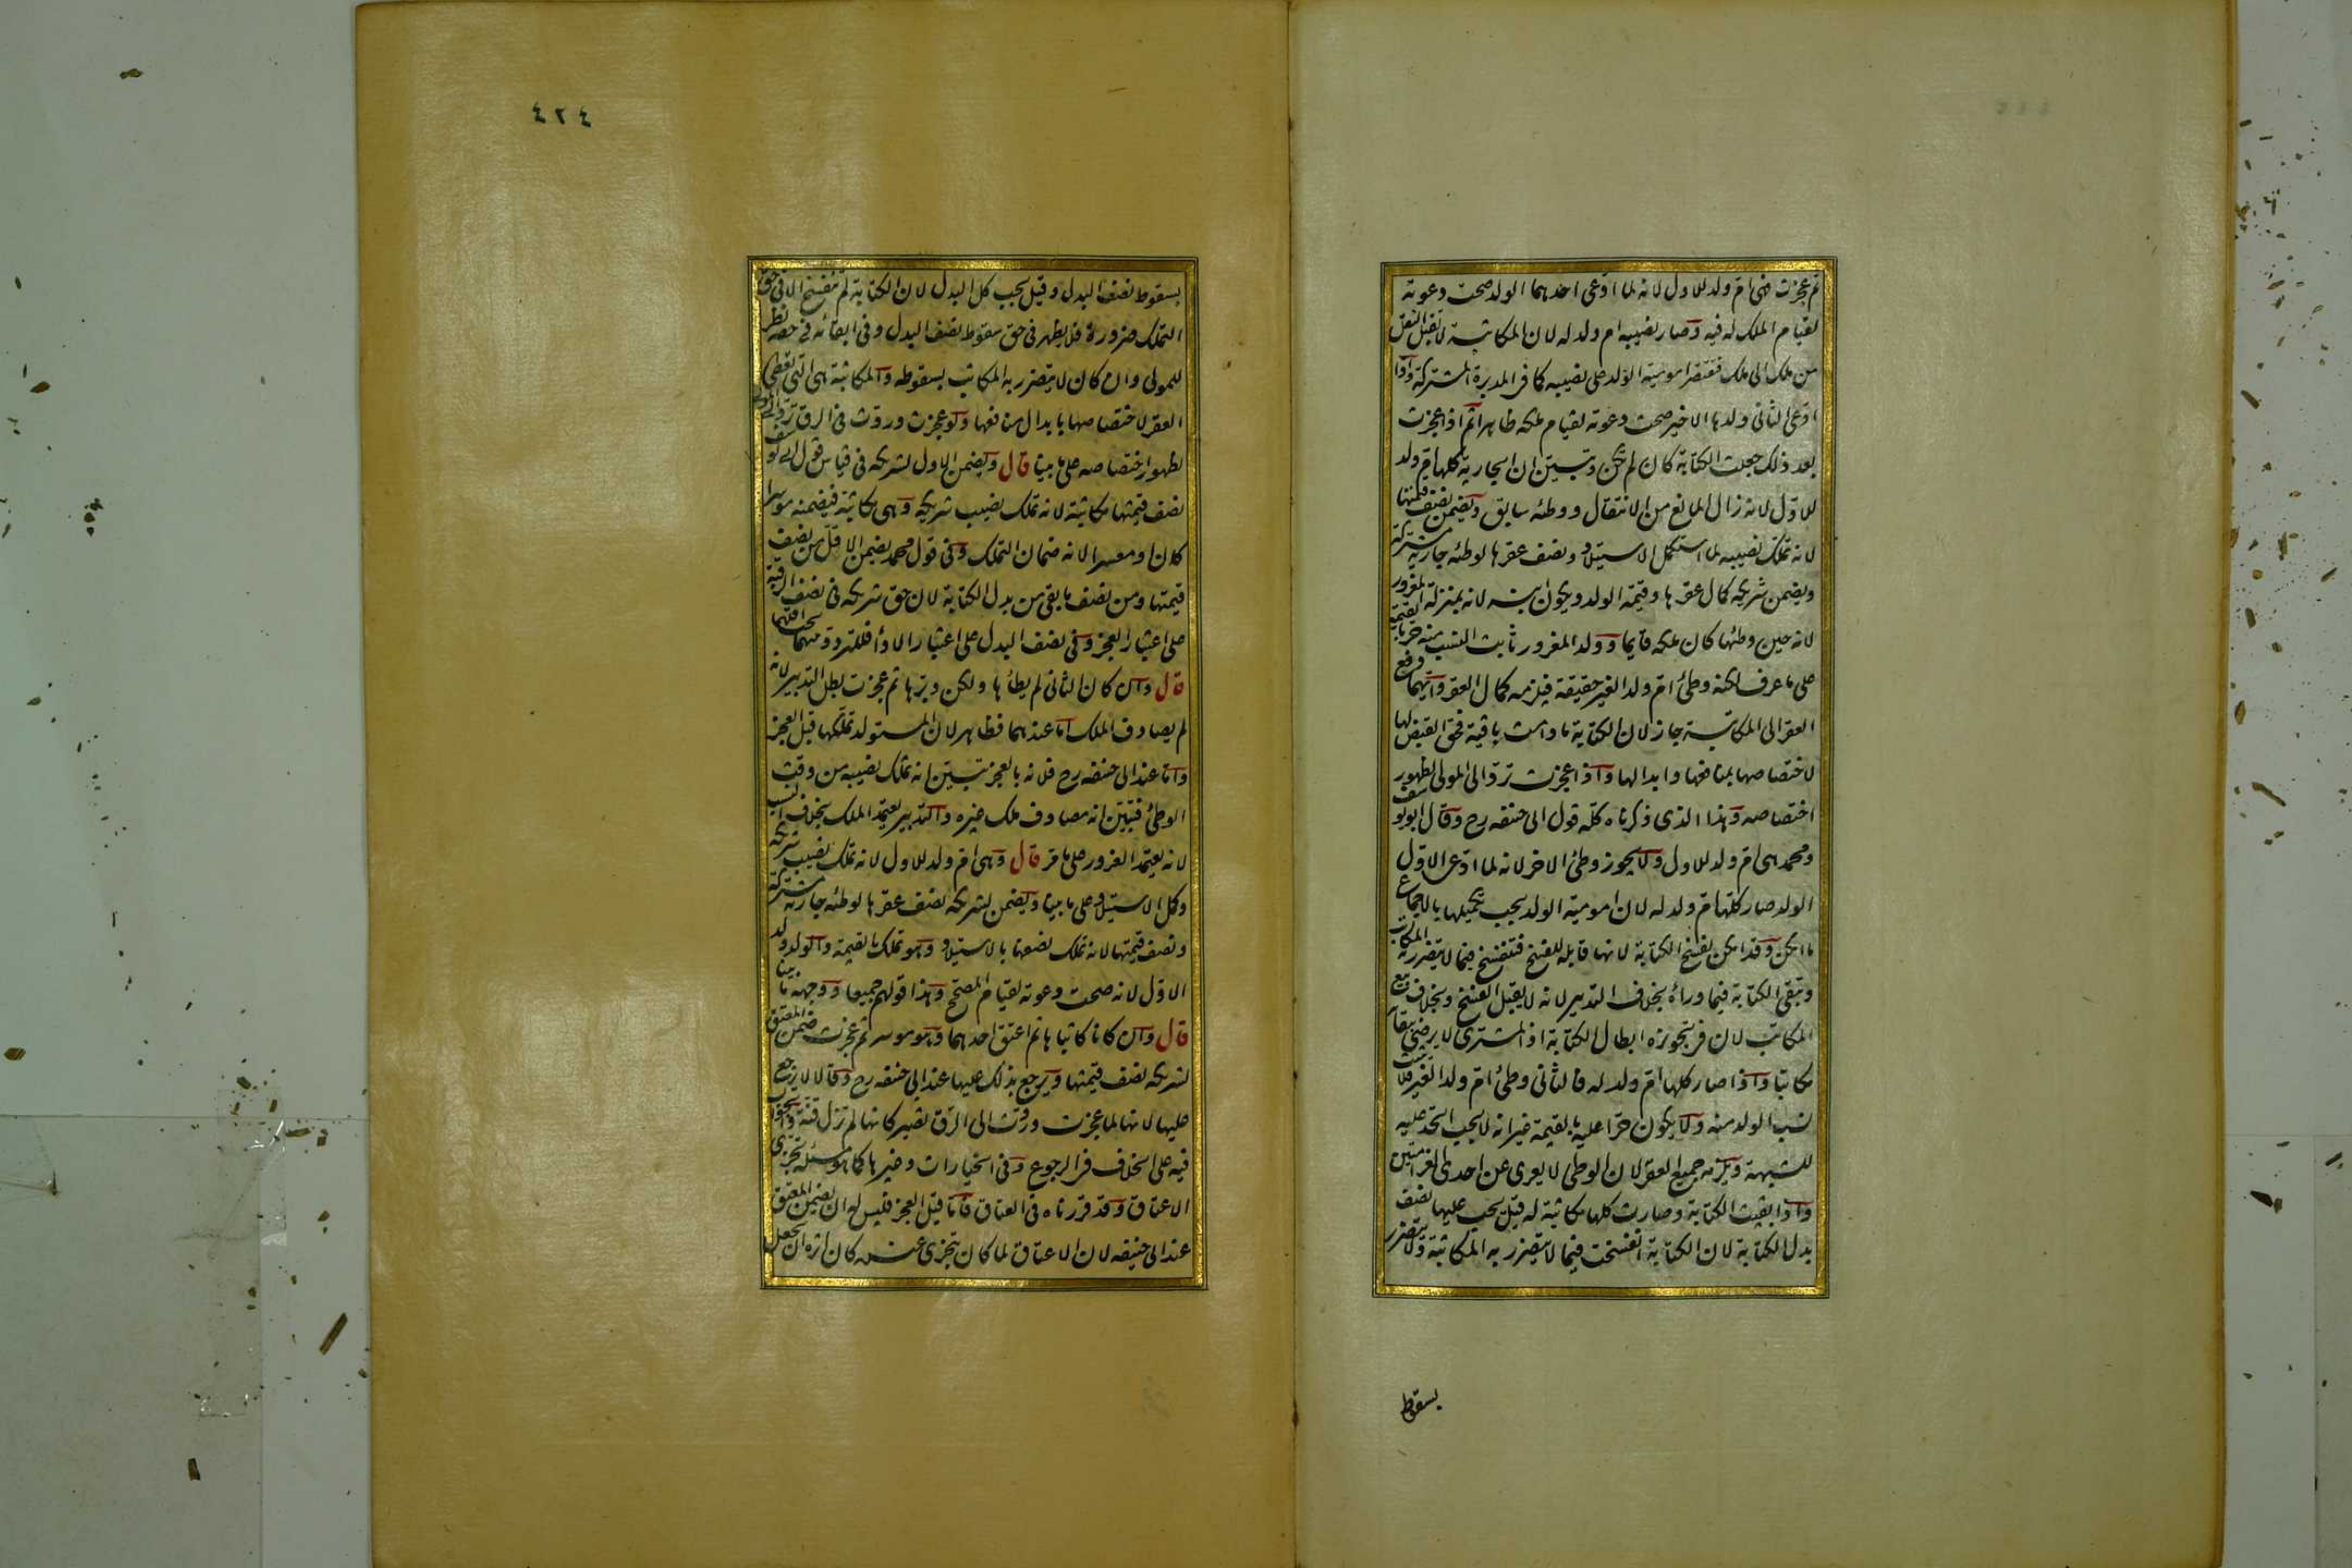 ثم عجزت فهي ام ولد للاول لانه لما ادعى احدهما الولد صحت دعوته
لقيام الملك له فيه وصار نصيبه ام ولد له لان المكاتبة لا تقبل النقل
من ملك الى ملك فتقتصر امومية الولد على نصيبه كما في المدبرة المشتركة واذا
ادعى الثاني ولدها الاخير صحت دعوته لقيام ملكه ظاهرا ثم اذا عجزت
بعد ذلك جعلت الكتابة كان لم تكن وتبين ان الجارية كلها ام ولد
للاول لانه زال المانع من الانتقال ووطئه سابق ويضمن نصف قيمتها
لانه تملك نصيبه لما استكمل الاستيلاد ونصف عقرها لوطئه جارية مشتركة
ويضمن شريكه كمال عقرها وقيمة الولد ويكون ابنه لانه بمنزلة المغرور
لانه حين وطئها كان ملكه قائما وولد المغرور ثابت النسب منه حر بالقيمة
على ما عرف لكنه وطئ ام ولد الغير حقيقة فيلزمه كمال العقر وايهما دفع
العقر الى المكاتبة جاز لان الكتابة ما دامت باقية فحق القبض لها
لاختصاصها بمنافعها وابدالها واذا عجزت ترد الى المولى لظهور
اختصاصه وهذا الذي ذكرناه كله قول ابي حنيفه رح وقال ابو يوسف
ومحمد هي ام ولد للاول ولا يجوز وطئ الاخر لانه لما ادعى الاول
الولد صار كلها ام ولد له لان امومية الولد يجب تكميلها بالاجماع
ما امكن وقد امكن بفسخ الكتابة لانها قابلة للفسخ فتفسخ فيما لا يتضرر به المكاتب
وتبقى الكتابة فيما وراءه بخلاف التدبير لانه لا يقبل الفسخ وبخلاف بيع
المكاتب لان في تجويزه ابطال الكتابة اذ المشتري لا يرضى ببقائه
مكاتبا واذا صار كلها ام ولد له فالثاني وطئ ام ولد الغير فلا يثبت
نسب الولد منه ولا يكون حرا عليه بالقيمة غير انه لا يجب الحد عليه
للشبهة ويلزمه جميع العقر لان الوطئ لا يعرى عن احدى الغرامتين
واذا بقيت الكتابة وصارت كلها مكاتبة له قيل يجب عليها نصف
بدل الكتابة لان الكتابة انفسخت فيما لا تتضرر به المكاتبة ولا تتضرر
بسقوط
٤٢٤
بسقوط نصف البدل وقيل يجب كل البدل لان الكتابة لم تنفسخ الا في حق
التملك ضرورة فلا يظهر في حق سقوط نصف البدل وفي ابقائه في حقه نظر
للمولى وان كان لا يتضرر به المكاتب بسقوطه والمكاتبة هي التي تعطي
العقر لاختصاصها بابدال منافعها ولو عجزت وردت في الرق ترد الى المولى
لظهور اختصاصه على ما بينا قال ويضمن الاول لشريكه في قياس قول ابي يوسف
نصف قيمتها مكاتبة لانه تملك نصيب شريكه وهي مكاتبة فيضمنه موسرا
كان او معسرا لانه ضمان التملك وفي قول محمد يضمن الاقل من نصف
قيمتها ومن نصف ما بقي من بدل الكتابة لان حق شريكه في نصف الرقبة
على اعتبار العجز وفي نصف البدل على اعتبار الاداء فللتردد بينهما يجب اقلهما
قال وان كان الثاني لم يطاها ولكن دبرها ثم عجزت بطل التدبير لانه
لم يصادف الملك اما عندهما فظاهر لان المستولد تملكها قبل العجز
واما عند ابي حنيفه رح فلانه بالعجز تبين انه تملك نصيبه من وقت
الوطئ فتبين انه مصادف ملك غيره والتدبير يعتمد الملك بخلاف النسب
لانه يعتمد الغرور على ما مر قال وهي ام ولد للاول لانه تملك نصيب شريكه
وكمل الاستيلاد على ما بينا ويضمن لشريكه نصف عقرها لوطئه جارية مشتركة
ونصف قيمتها لانه تملك نصفها بالاستيلاد وهو تملك بالقيمة والولد ولد
الاول لانه صحت دعوته لقيام المصحح وهذا قولهم جميعا ووجهه ما بينا
قال وان كانا كاتباها ثم اعتق احدهما وهو موسر ثم عجزت ضمن المعتق
لشريكه نصف قيمتها ويرجع بذلك عليها عند ابي حنيفه رح وقالا لا يرجع
عليها لانها لما عجزت وردت الى الرق تصير كانها لم تزل قنة والجواب
فيه على الخلاف في الرجوع وفي الخيارات وغيرها كما هو مسئلة تجزي
الاعتاق وقد قررناه في العتاق فاما قبل العجز فليس له ان يضمن المعتق
عند ابي حنيفه لان الاعتاق لما كان يتجزى عنده كان اثره ان يجعل